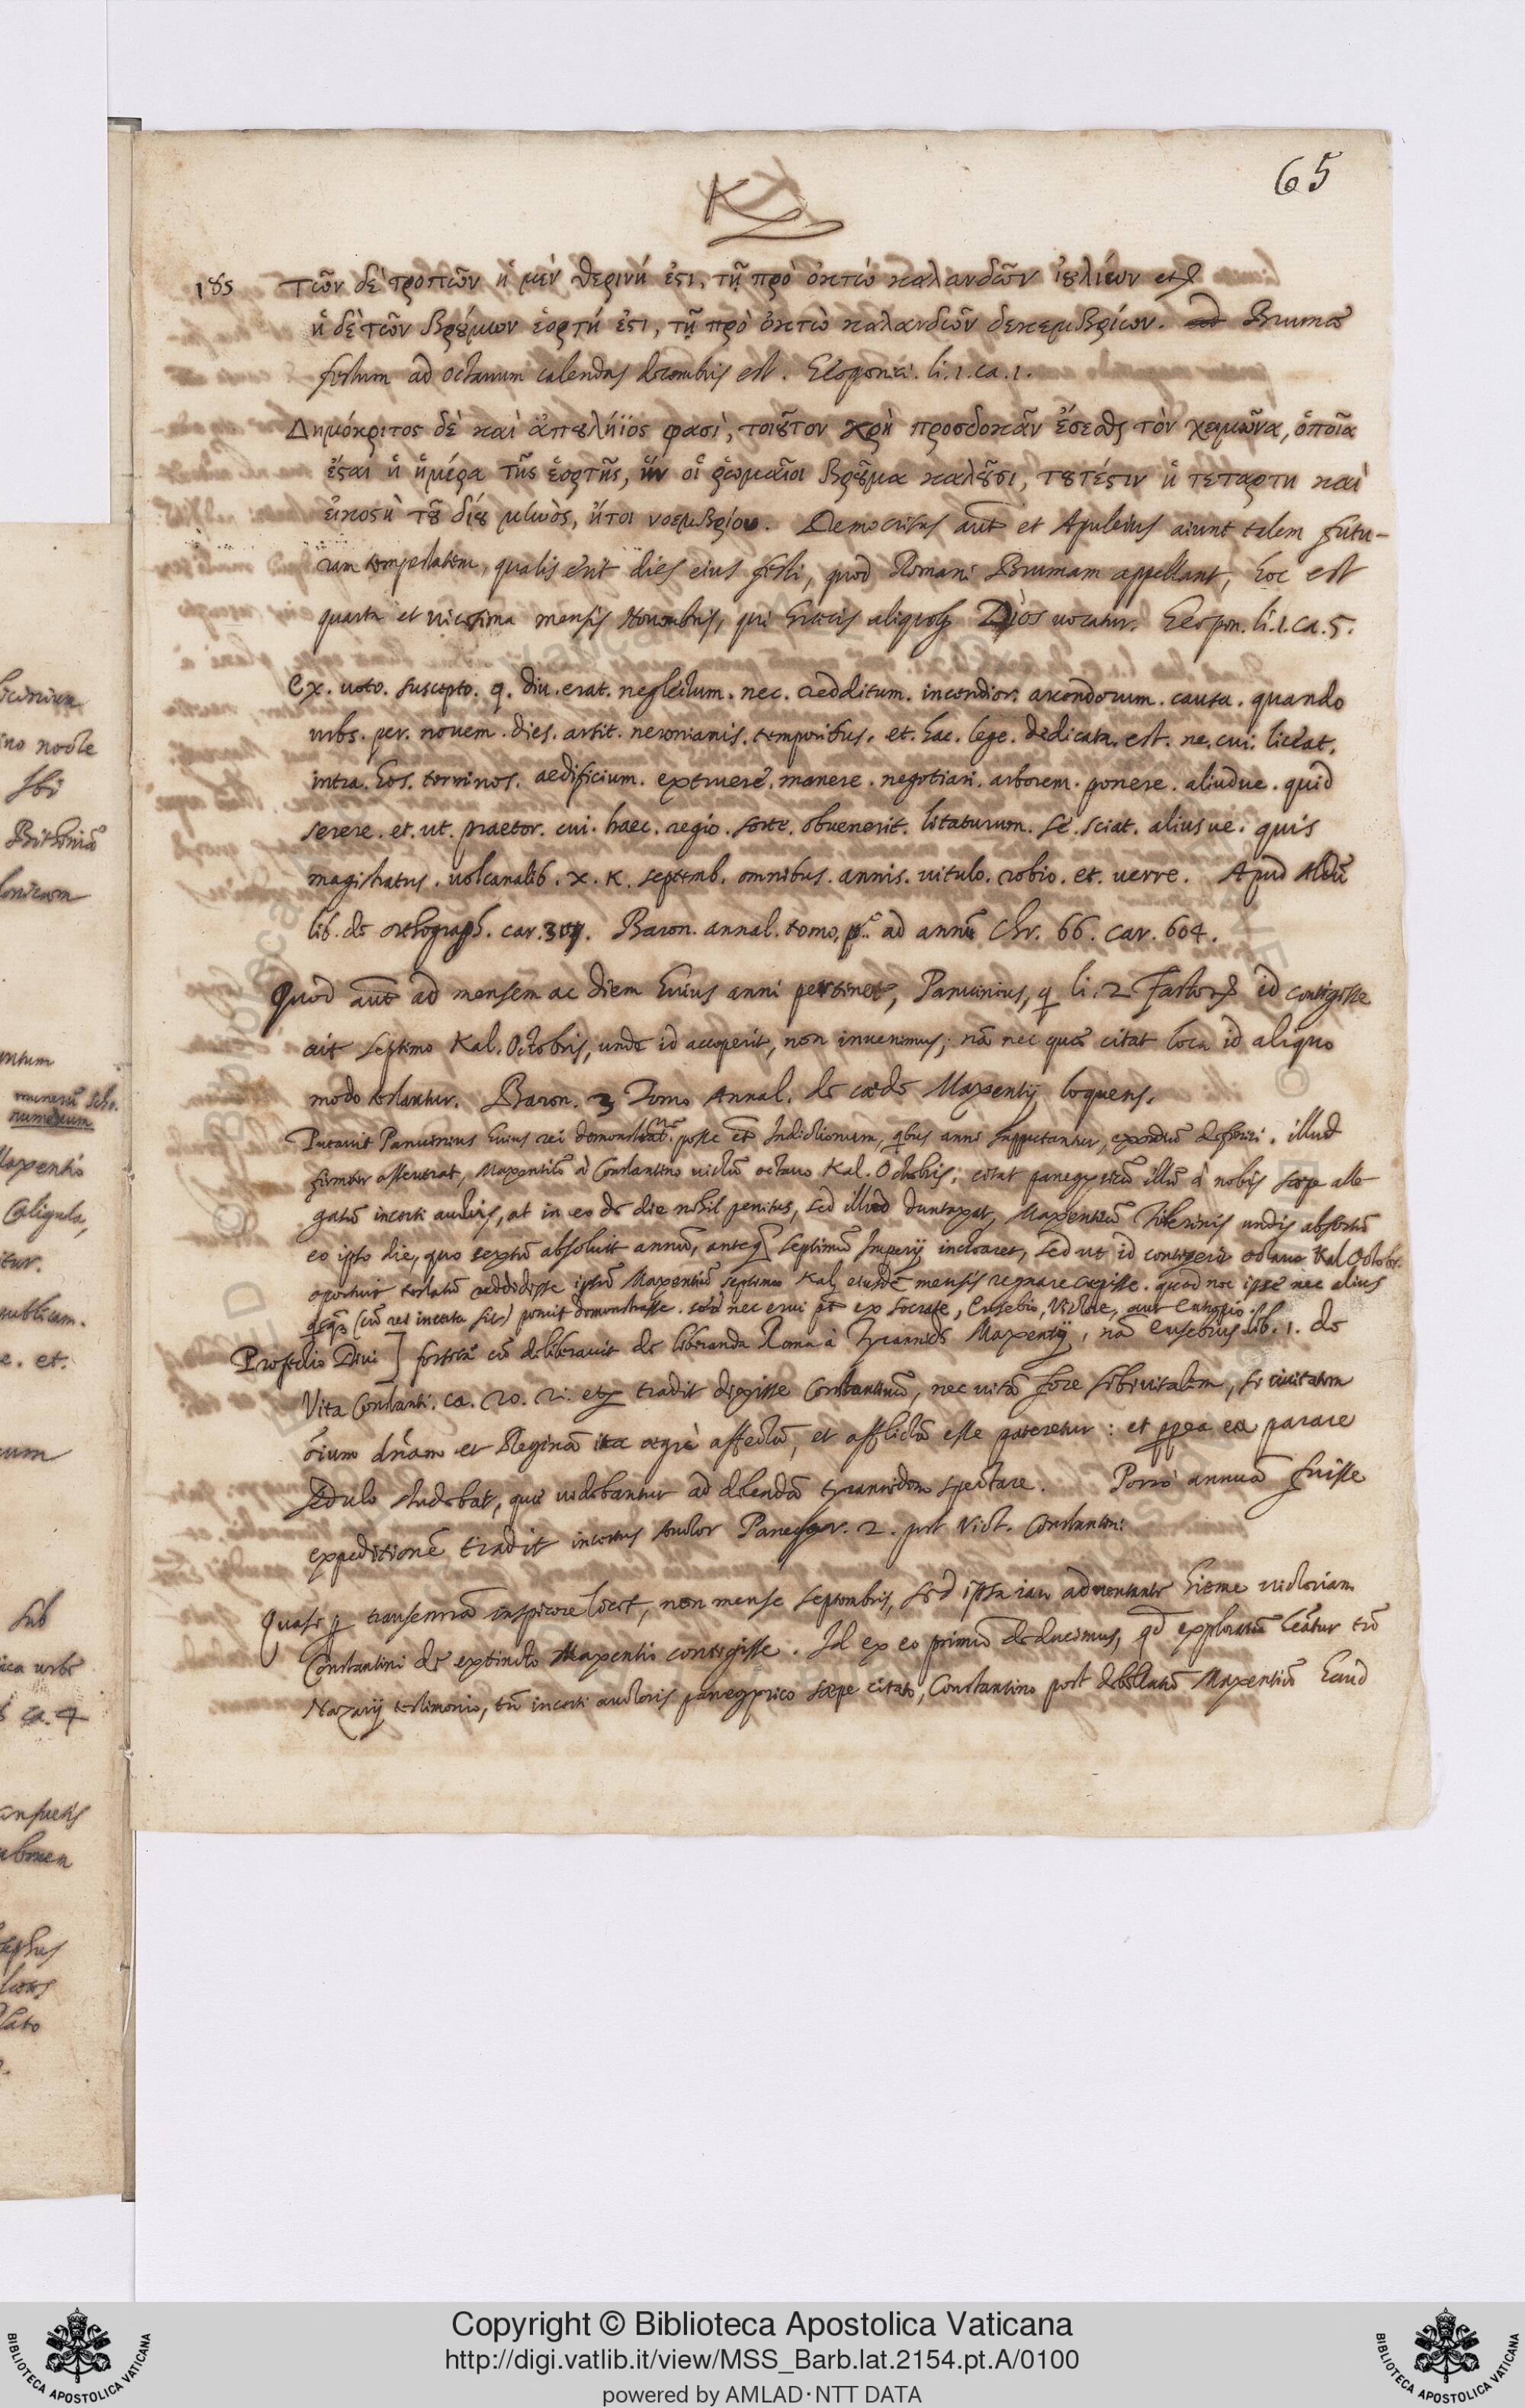 65
K
185 Τῶν δὲ τροπῶν ἡ μὲν θερινή ἐστι, τῇ πρὸ ὀκτὼ καλανδῶν ἰουλίων etc
ἡ δὲ τῶν βρούμων ἑορτή ἐστι, τῇ πρὸ ὀκτὼ καλανδῶν δεκεμβρίων. Brumae
festum ad octauum calendas decembris est. Geoponici. li.1.ca.1.
Δημόκριτος δὲ καὶ ἀπουλήϊός φασὶ, τοιοῦτον χρὴ προσδοκᾶν ἔσεσθαι τὸν χειμῶνα, ὁποῖα
ἔσται ἡ ἡμέρα τῆς ἑορτῆς, ἣν οἱ ῥωμαῖοι βροῦμα καλοῦσι, τουτέστιν ἡ τετάρτη καὶ
εἰκοστὴ τοῦ δίου μηνὸς, ἤτοι νοεμβρίου. Democritus aūt et Apuleius aiunt talem futu-
ram tempestatem, qualis erit dies eius festi, quod Romani Brumam appellant, hoc est
quarta et uicesima mensis Nouembris, qui Graecis Dios uocatur. Geopon. li.1.ca.5.
Ex. uoto. suscepto. q. diu. erat. neglectum. nec. redditum. incendior. arcendorum. causa. quando
urbs. per. nouem. dies. arsit. neronianis. temporibus. et. hac. lege. dedicata. est. ne. cui. liceat.
intra. hos. terminos. aedificium. extruere. manere. negotiari. arborem. ponere. aliudue. quid
serere. et. ut. praetor. cui. haec. regio. sorte. obuenerit. litaturum. se. sciat. aliusue. quis
magistratus. uolcanalib. x. K. septemb. omnibus. annis. uitulo. robio. et. uerre. Apud Aldū
lib. de orthograph. car. Baron. annal. tomo. p.o ad annū Chr. 66. car. 604.
Quod aūt ad mensem ac diem huius anni pertinet, Panuinius, q li. 2. Fastor id contigisse
ait septimo Kal. Octobris, unde id acceperit, non inuenimus; nā nec quae citat loca id aliquo
modo testantur. Baron. 3 Tomo Annal. de caede Maxentij loquens.
Putauit Panuinius huius rei posse et Indictionum, qbus anni supputantur, exordiū illud
firmiter asseuerat, Maxentiū à Constantino uictū octauo Kal. Octobris; citat panegyricū illū à nobis saepe alle
gatū incerti auctoris, at in eo de die nihil penitus, sed illud duntaxat, Maxentium Tiberinis undis absortū
eo ipso die, quo sextū absoluit annū, anteq septimū Imperij inchoaret, sed ut id contigerit octauo Kal Octobr.
oportuit testatū reddidisse ipsū Maxentiū septimo Kal eiusdē mensis regnare caepisse. quod nec ipse nec alius
(cū res incerta sit) potuit demonstrasse. nec erui pt ex Socrate, Eusebio, Victore, aut Eutropio.
Profectio Diui ] cū deliberauit de liberanda Roma à Tyrannide Maxentij, nā Eusebius lib. 1. de
Vita Constanti. ca. 20. 21. etc tradit dixisse Constantinū, nec uitā fore sibi uitalem, si ciuitatem
ōium dnam et Reginā ita aegrè affectā, et afflictā esse pateretur: et ppea ea parare
sedulo studebat, que uidebantur ad delendā tyrannidem spectare. Porrò annuā fuisse
expeditionē tradit incertus Auctor Panegyr. 2. pst Vict. Constantini
Quasi p transennā inspicere licet, non mense septembris, sed ipsa iam aduentante hieme uictoriam
Constantini de extincto Maxentio contigisse. Id ex eo primū deducimus, qd exploratū heatur tū
Nazarij testimonio, tū incerti auctoris panegyrico saepe citato, Constantino post debellatū Maxentiū haud
ino nocte
sibi
mentum
numerum
Maxentio
Caligula,
publicum.
e. et.
sub
ca. 4
Copyright © Biblioteca Apostolica Vaticana
http://digi.vatlib.it/view/MSS_Barb.lat.2154.pt.A/0100
powered by AMLAD·NTT DATA
BIBLIOTECA APOSTOLICA VATICANA
BIBLIOTECA APOSTOLICA VATICANA